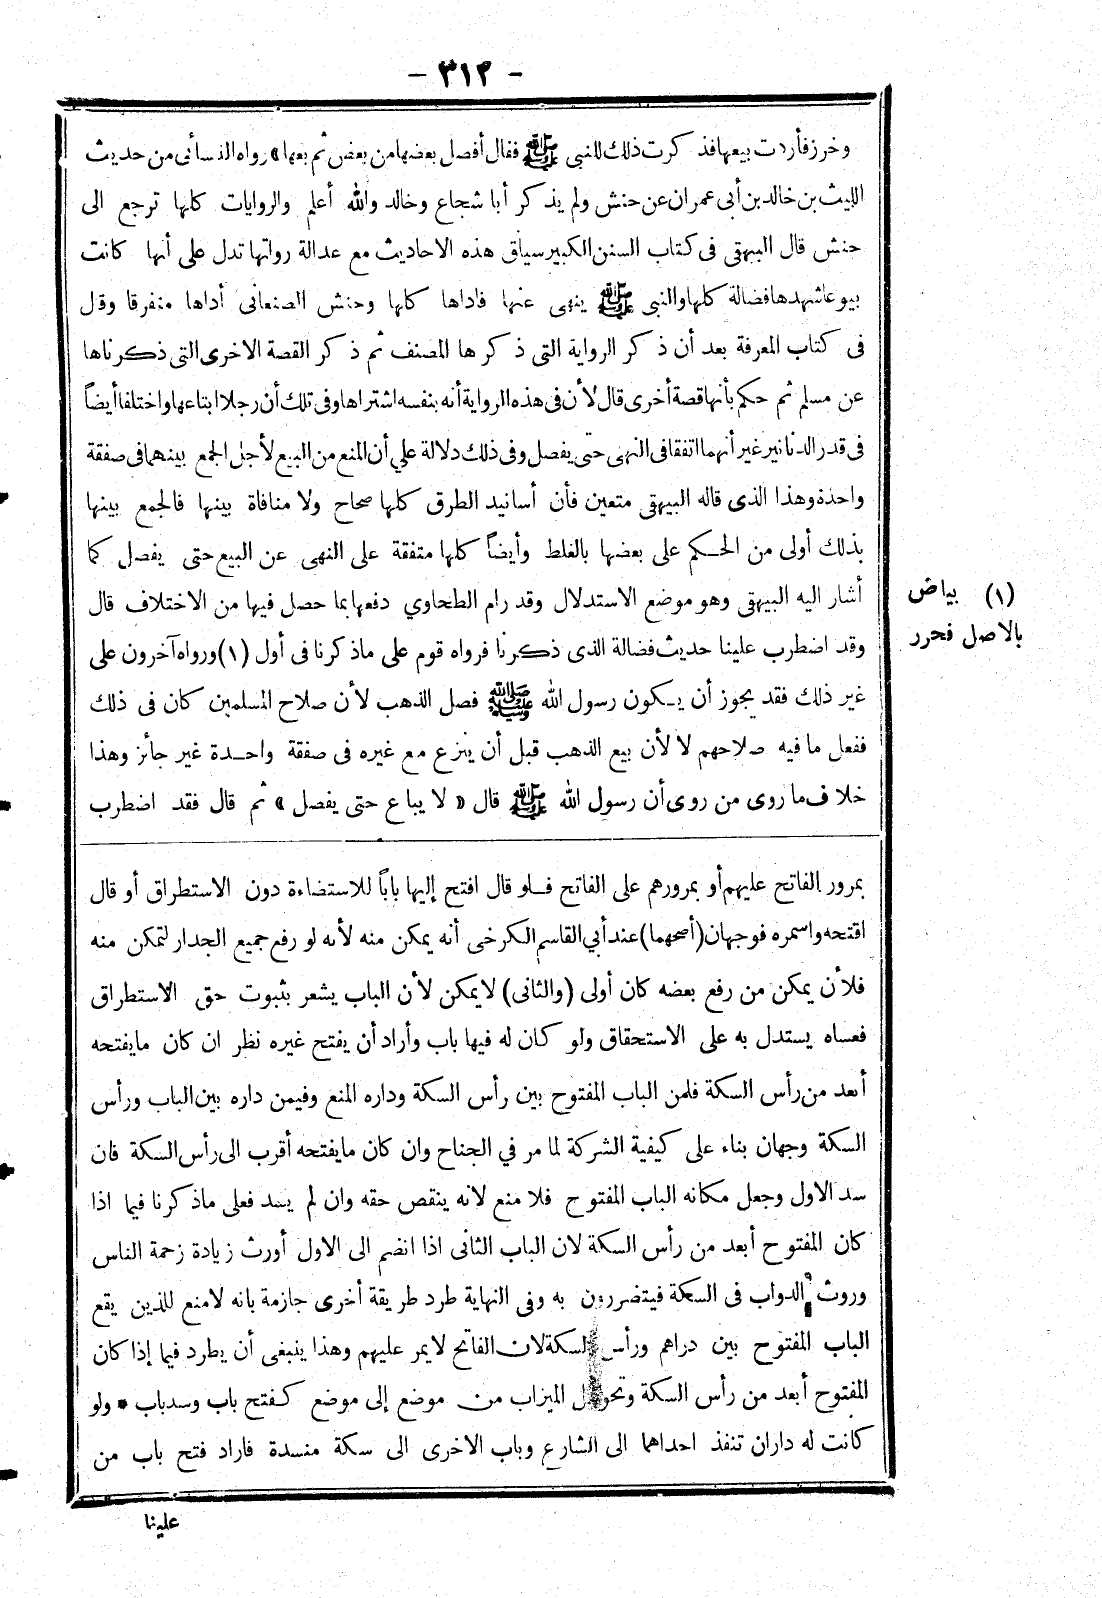 - ٣١٢ -
وخرز فأردت بيعها فذكرت ذلك للنبي ﷺ فقال أفصل بعضها من بعض ثم بعها » رواه النسائى من حديث
الليث بن خالد بن أبى عمران عن حنش ولم يذكر أبا شجاع وخالد والله أعلم والروايات كلها ترجع الى
حنش قال البيهقى فى كتاب السنن الكبير سياق هذه الاحاديث مع عدالة رواتها تدل على أنها كانت
بيوعا شهدها فضالة كلها والنبى ﷺ ينهى عنها فاداها كلها وحنش الصنعانى أداها متفرقا وقال
فى كتاب المعرفة بعد أن ذكر الرواية التى ذكرها المصنف ثم ذكر القصة الاخرى التى ذكرناها
عن مسلم ثم حكم بأنها قصة أخرى قال لأن فى هذه الرواية أنه بنفسه اشتراها وفى تلك أن رجلا ابتاعها واختلفا أيضاً
فى قدر الدنانير غير أنهما اتفقا فى النهى حتى يفصل وفى ذلك دلالة علي أن المنع من البيع لأجل الجمع بينهما فى صفقة
واحدة وهذا الذى قاله البيهقى متعين فأن أسانيد الطرق كلها صحاح ولا منافاة بينها فالجمع بينها
بذلك أولى من الحكم على بعضها بالغلط وأيضاً كلها متفقة على النهى عن البيع حتى يفصل كما
أشار اليه البيهقى وهو موضع الاستدلال وقد رام الطحاوي دفعها بما حصل فيها من الاختلاف قال
وقد اضطرب علينا حديث فضالة الذى ذكرنا فرواه قوم على ماذكرنا فى أول (١) ورواه آخرون على
غير ذلك فقد يجوز أن يكون رسول الله ﷺ فصل الذهب لأن صلاح المسلمين كان فى ذلك
ففعل ما فيه صلاحهم لا لأن بيع الذهب قبل أن ينزع مع غيره فى صفقة واحدة غير جائز وهذا
خلاف ما روى من روى أن رسول الله ﷺ قال « لا يباع حتى يفصل » ثم قال فقد اضطرب
(١) بياض
بالاصل فحرر
بمرور الفاتح عليهم أو بمرورهم على الفاتح فلو قال افتح إليها باباً للاستضاءة دون الاستطراق أو قال
افتحه واسمره فوجهان (أصحهما) عند أبي القاسم الكرخى أنه يمكن منه لأنه لو رفع جميع الجدار لتمكن منه
فلأن يمكن من رفع بعضه كان أولى (والثانى) لا يمكن لأن الباب يشعر بثبوت حق الاستطراق
فعساه يستدل به على الاستحقاق ولو كان له فيها باب وأراد أن يفتح غيره نظر ان كان مايفتحه
أبعد من رأس السكة فلمن الباب المفتوح بين رأس السكة وداره المنع وفيمن داره بين الباب ورأس
السكة وجهان بناء على كيفية الشركة لما مر في الجناح وان كان مايفتحه أقرب الى رأس السكة فان
سد الاول وجعل مكانه الباب المفتوح فلا منع لانه ينقص حقه وان لم يسد فعلى ماذكرنا فيما اذا
كان المفتوح أبعد من رأس السكة لان الباب الثانى اذا انضم الى الاول أورث زيادة زحمة الناس
وروث الدواب فى السكة فيتضررون به وفى النهاية طرد طريقة أخرى جازمة بانه لامنع للذين يقع
الباب المفتوح بين دراهم ورأس السكة لان الفاتح لايمر عليهم وهذا ينبغى أن يطرد فيما إذا كان
المفتوح أبعد من رأس السكة وتحويل الميزاب من موضع إلى موضع كفتح باب وسد باب * ولو
كانت له داران تنفذ احداهما الى الشارع وباب الاخرى الى سكة منسدة فاراد فتح باب من
علينا